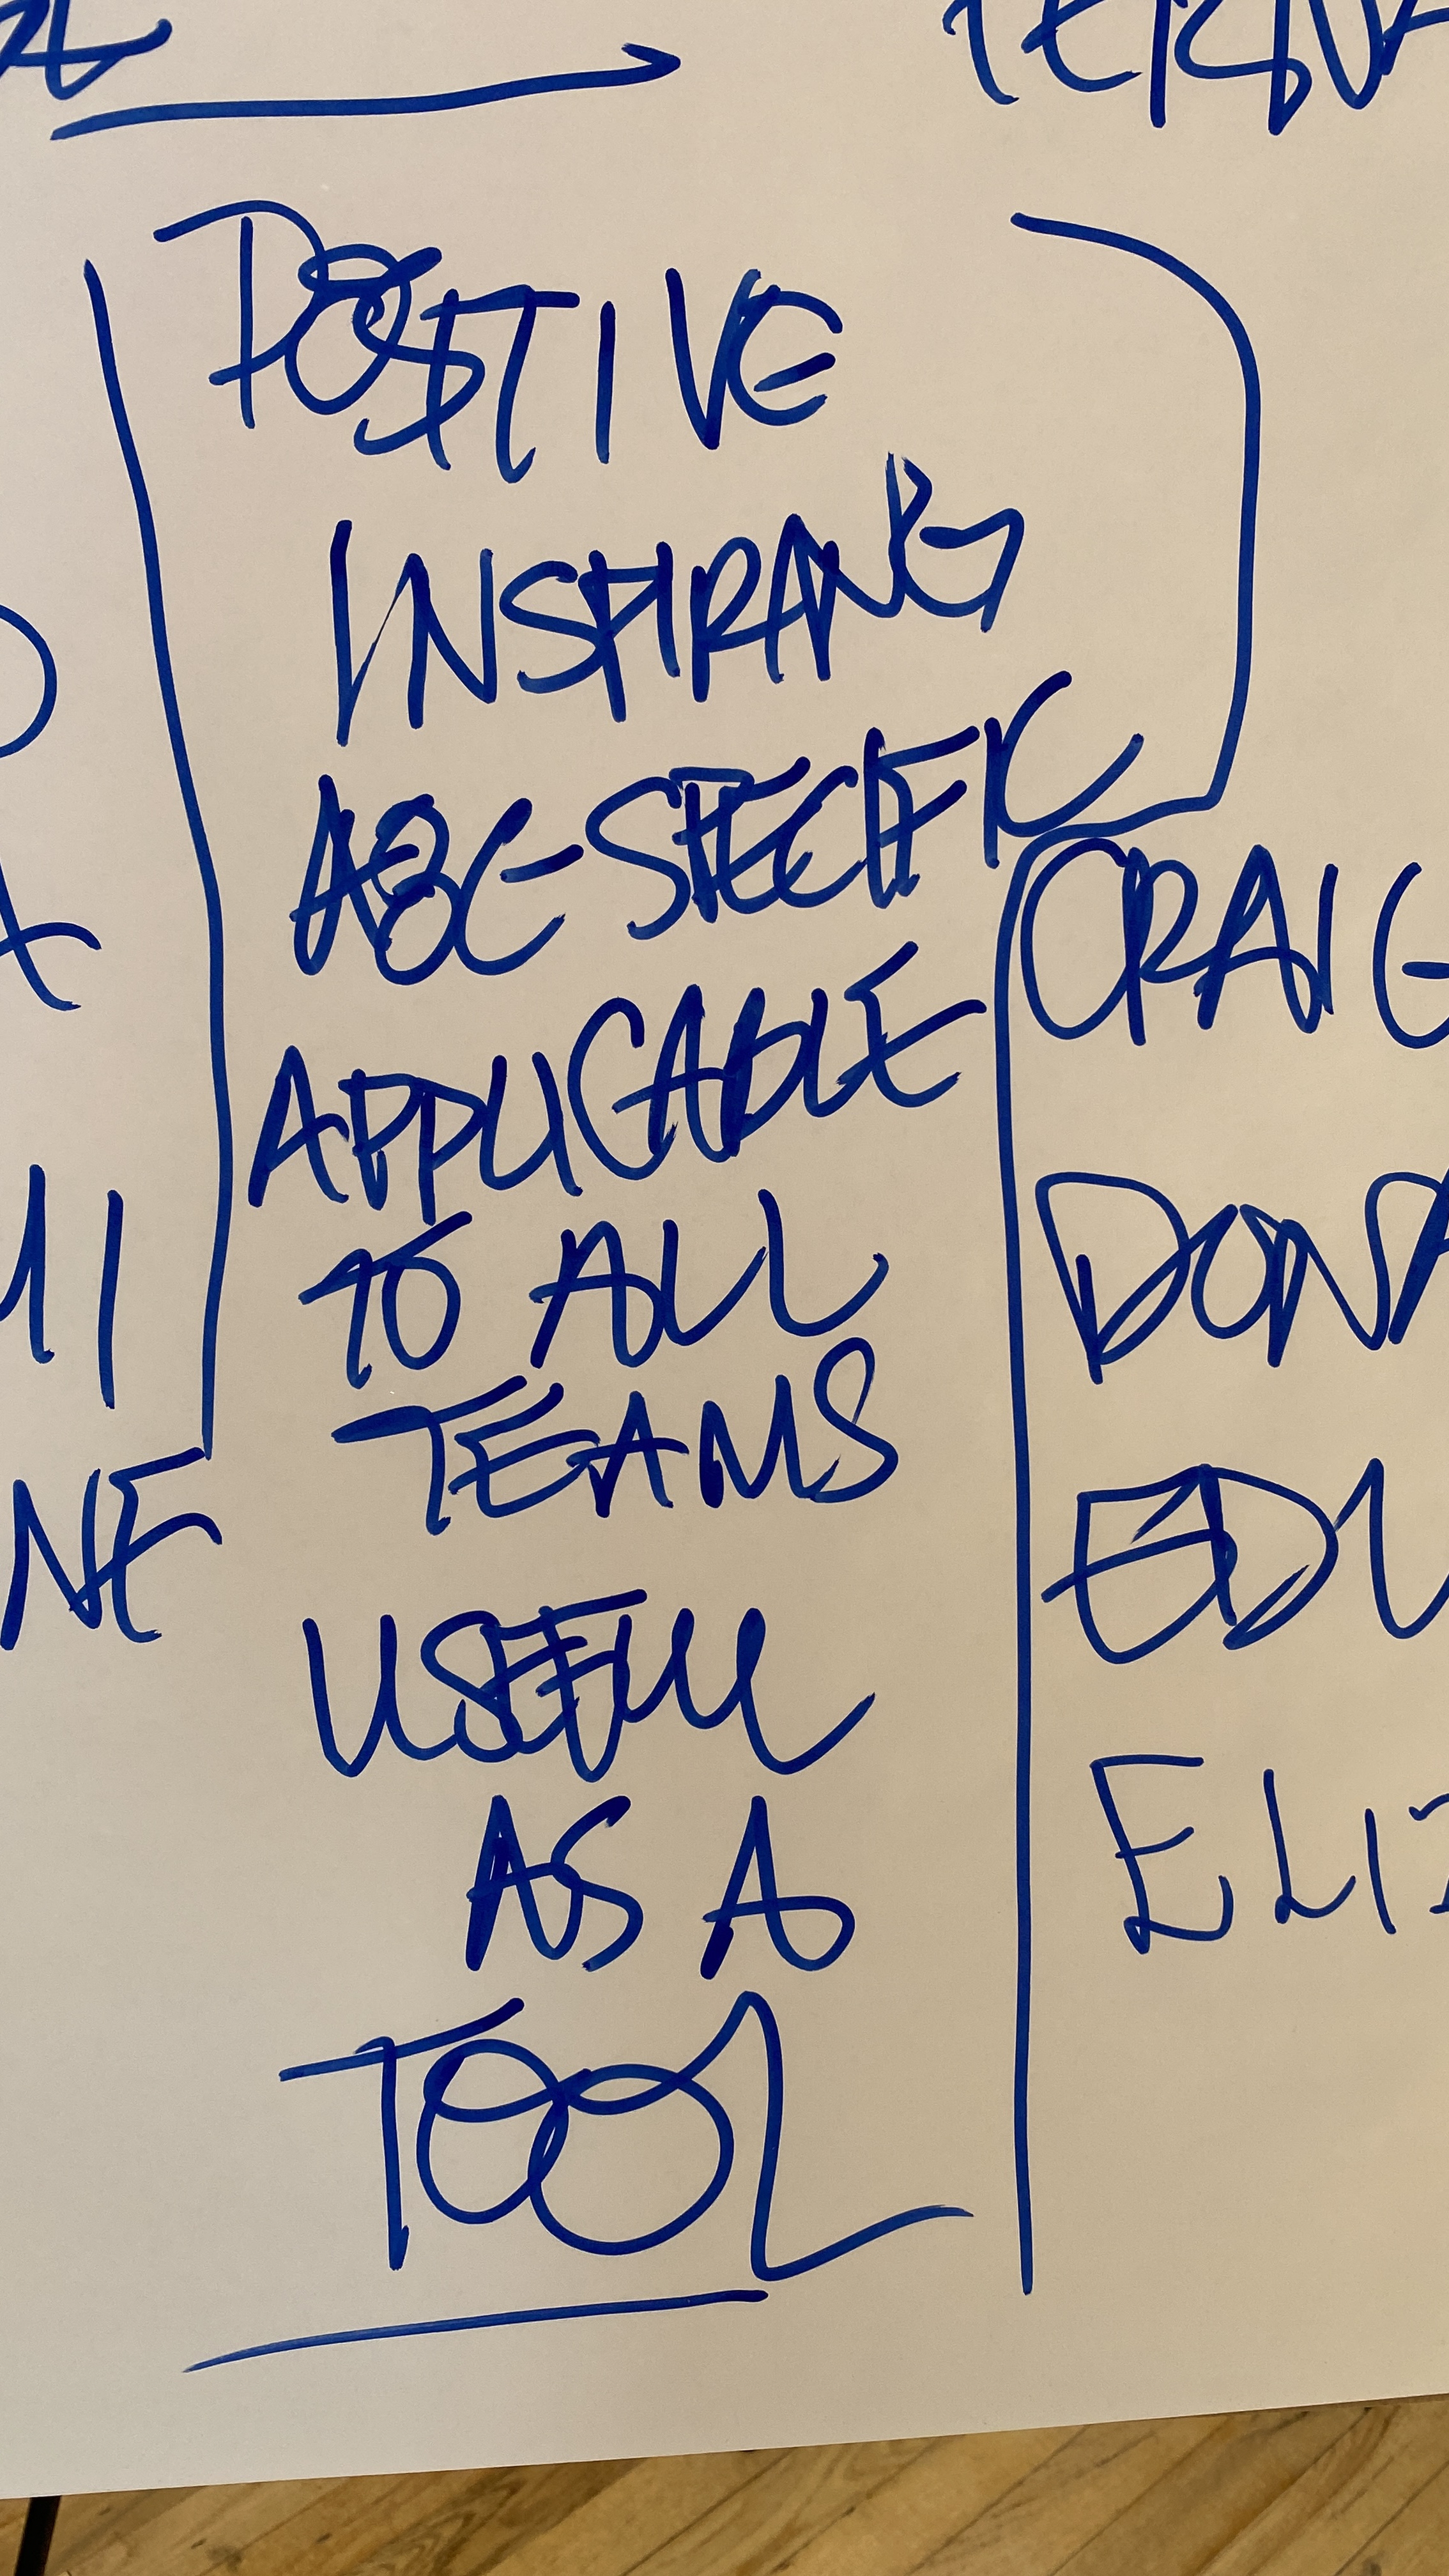 POSITIVE
INSPIRANG
ABC-SPECIFIC
APPLICABLE
TO ALL
TEAMS
USEFUL
AS A
TOOL
CRAIG
DONA
EDU
ELI
NE